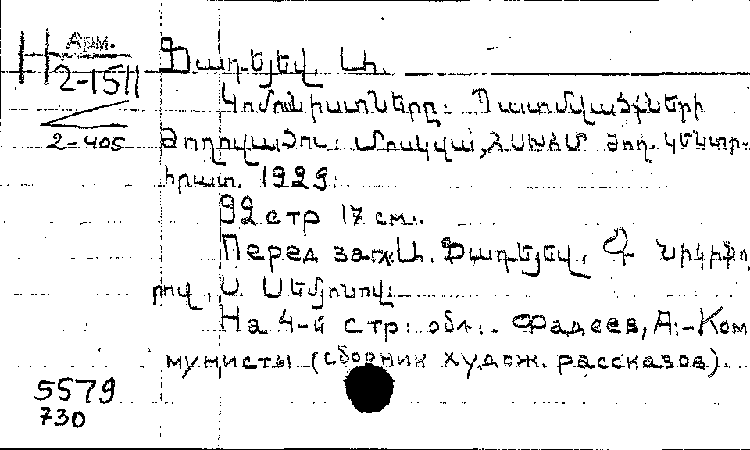 Н Арм.
2-1511
2-405
Ֆադեյեվ, Ա.
Կոմունիստները: Պատմվածքների
ժողովածու: Մոսկվա, ԽՍՀՄ ժող. կենտր.
հրատ. 1929:
92 стр 17 см.
Перед загл. Ա. Ֆադեյեվ, Գ. Նիկիֆո
րով, Ս. Սեմյոնով:
На 4-й стр. обл.: Фадеев, А.-Ком
мунисты (сборник худож. рассказов).
5579
730